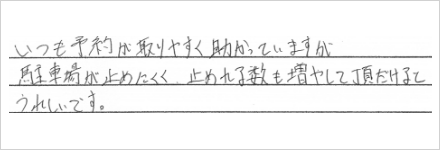 いつも予約が取りやすく助かっていますが
駐車場が止めたくく、止めれる数も増やして頂だけると
うれしいです。